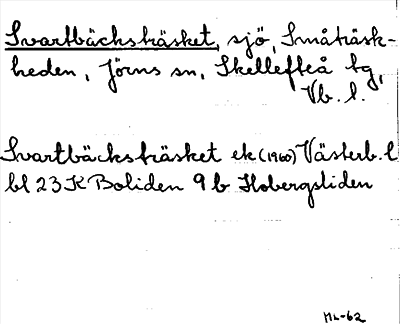 Svartbäcksträsket, sjö, Småträsk-
heden, Jörns sn, Skellefteå tg,
Vb. l.
Svartbäcksträsket ek (1960) Västerb. l
bl 23 K Boliden 9 b Hobergsliden
ML-62